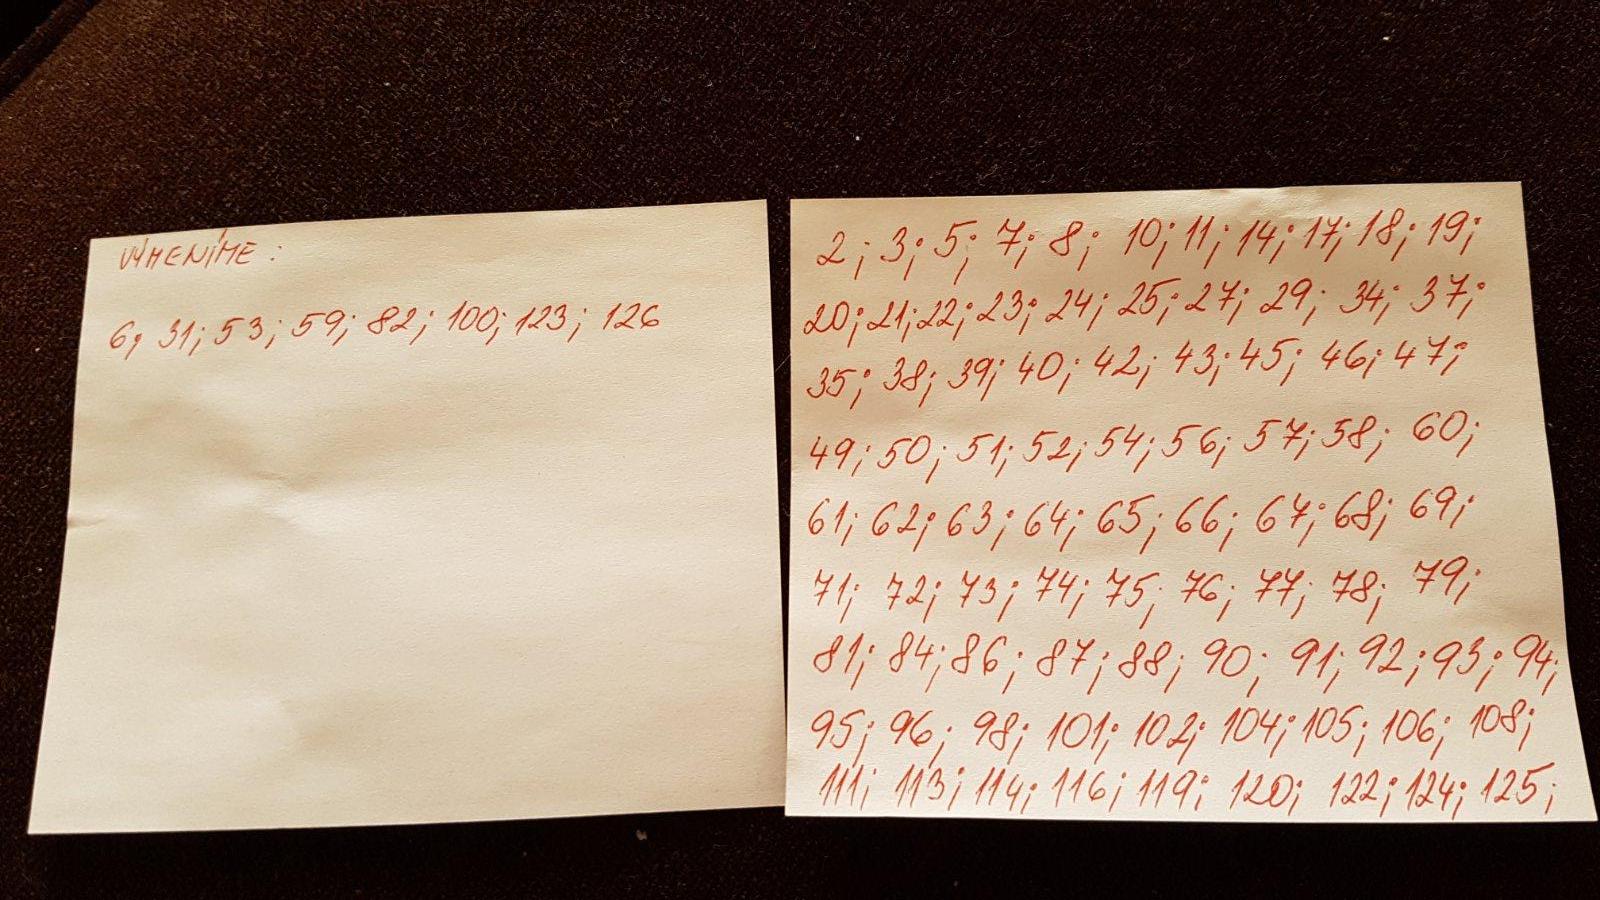 VÝMENÍME:
6; 31; 53; 59; 82; 100; 123; 126
2; 3; 5; 7; 8; 10; 11; 14; 17; 18; 19;
20; 21; 22; 23; 24; 25; 27; 29; 34; 37;
35; 38; 39; 40; 42; 43; 45; 46; 47;
49; 50; 51; 52; 54; 56; 57; 58; 60;
61; 62; 63; 64; 65; 66; 67; 68; 69;
71; 72; 73; 74; 75; 76; 77; 78; 79;
81; 84; 86; 87; 88; 90; 91; 92; 93; 94;
95; 96; 98; 101; 102; 104; 105; 106; 108;
111; 113; 114; 116; 119; 120; 122; 124; 125;